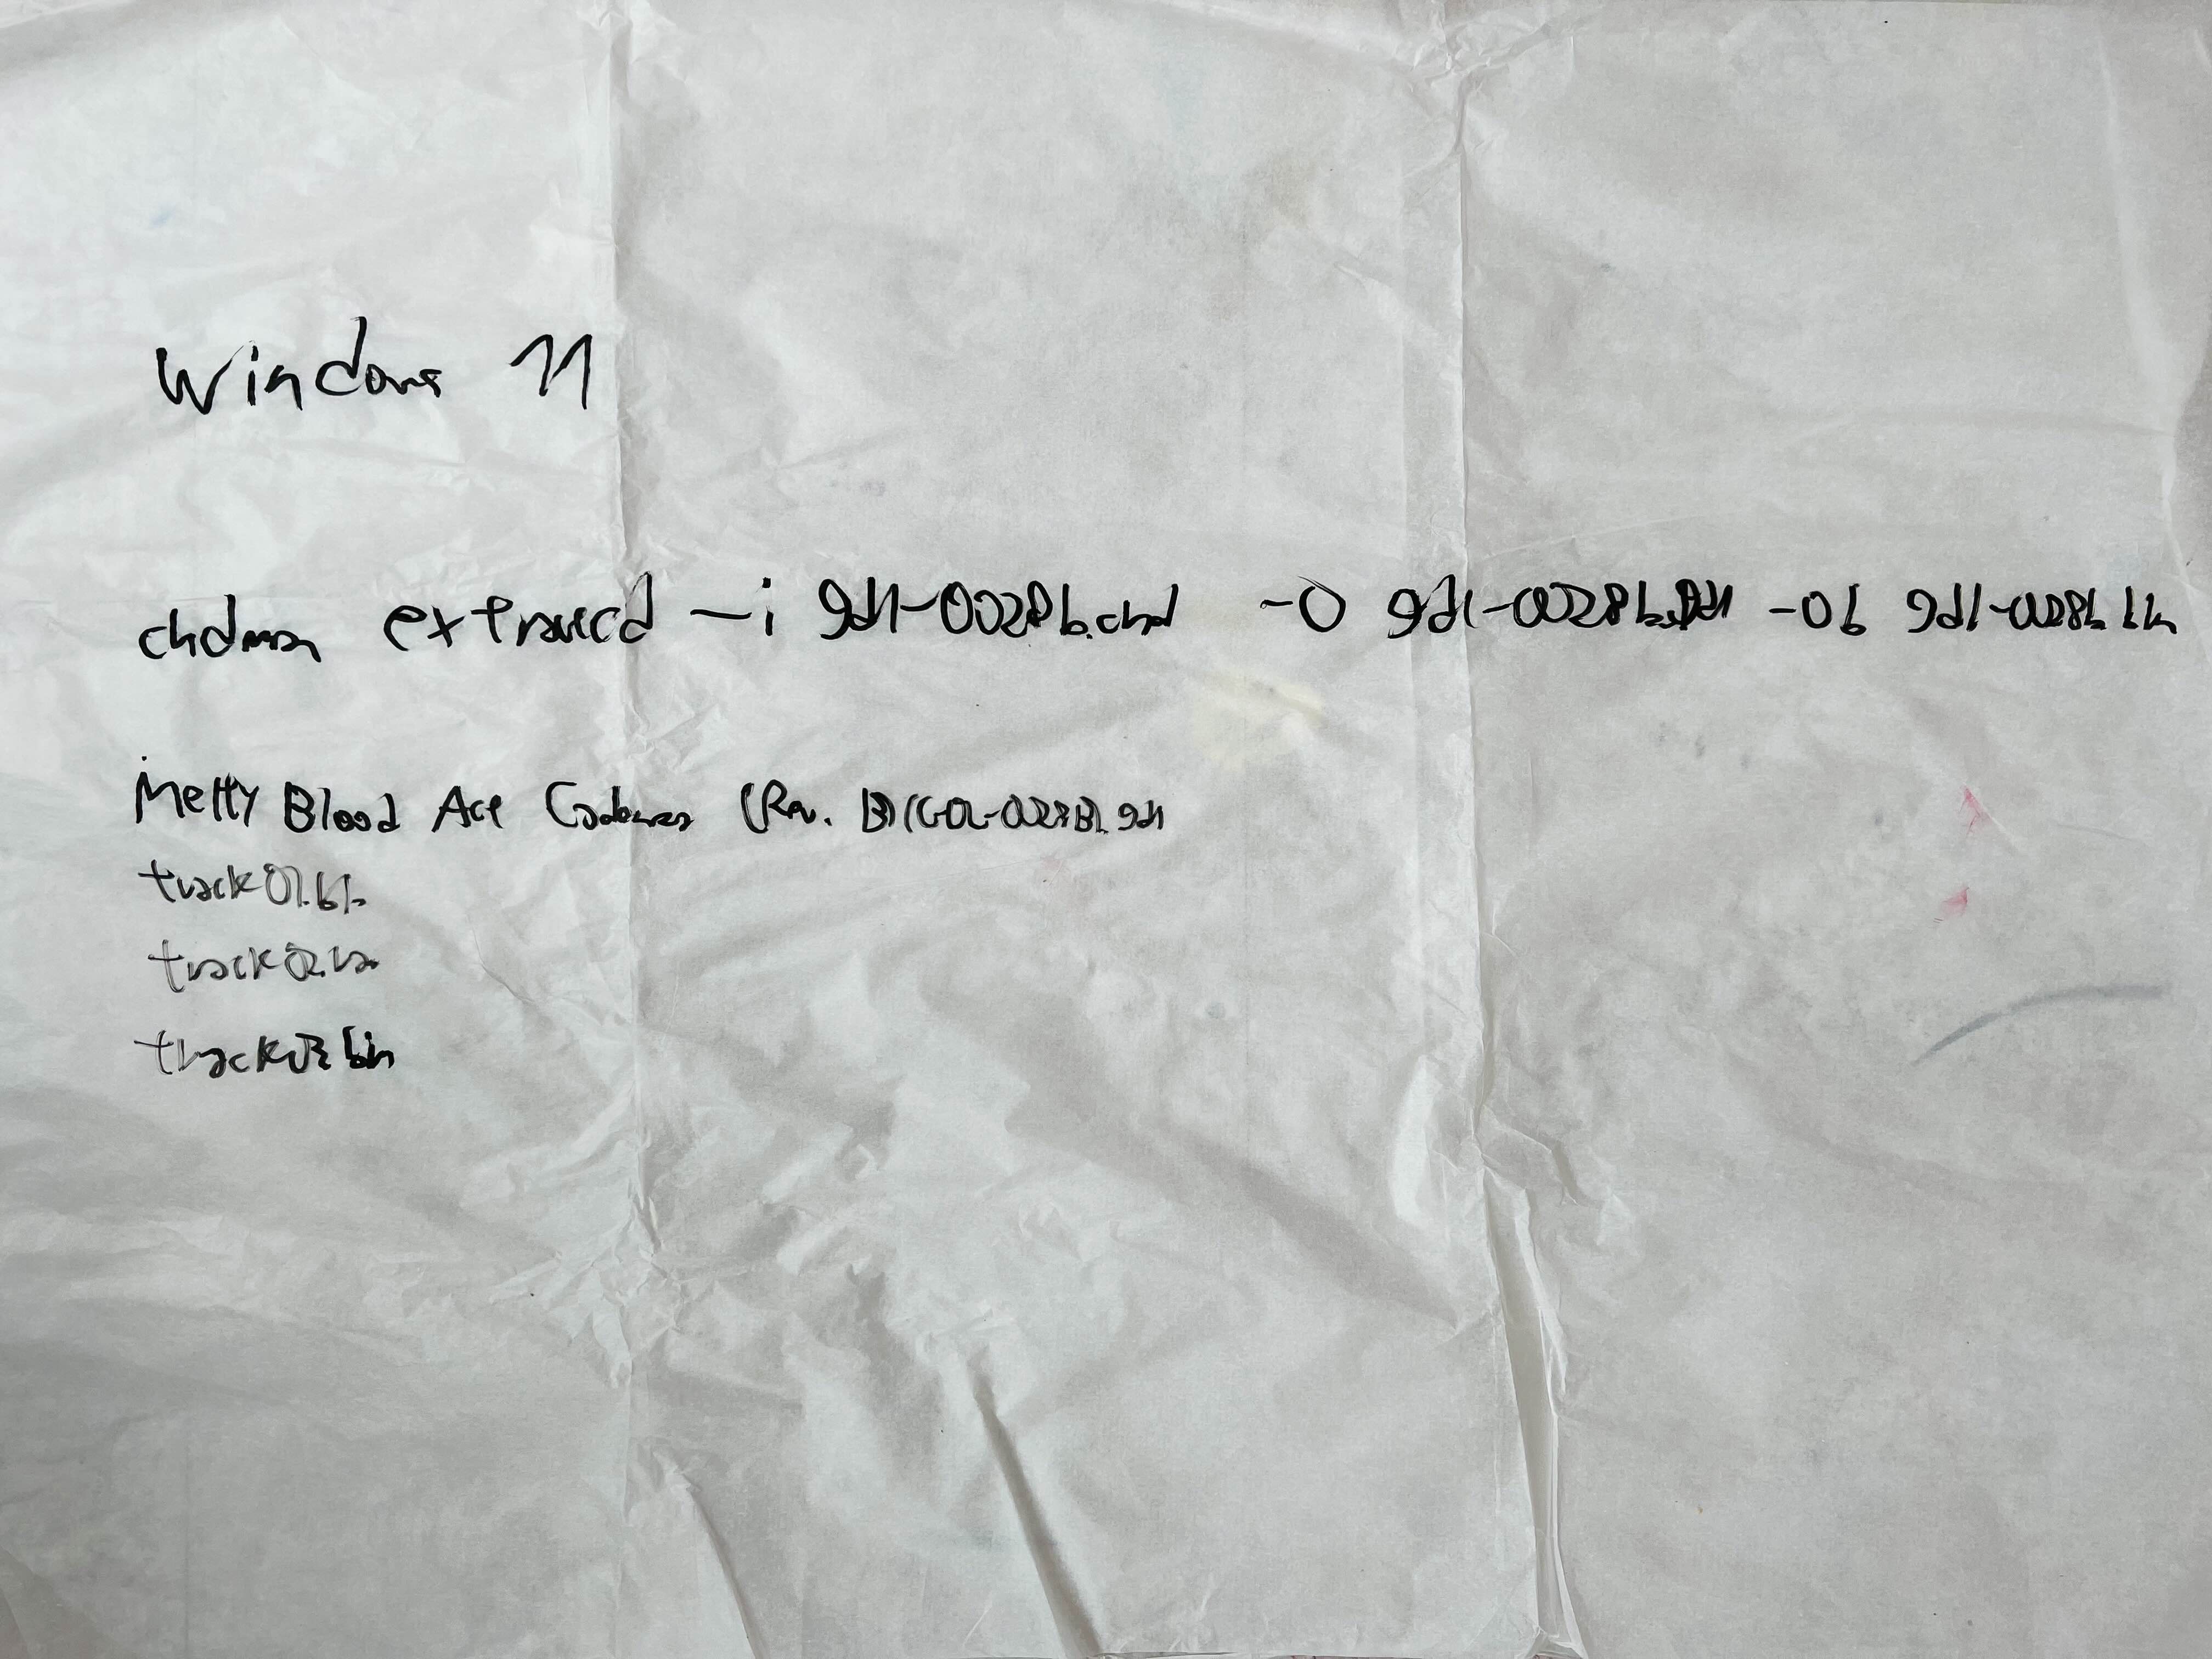 Windows 11
chdman extractcd -i gdl-0028b.chd -o gdl-0028b.gdi -ob gdl-0028b.bin
Melty Blood Act Cadenza (Rev. B) (GDL-0028B).gdi
track01.bin
track02.bin
track03.bin